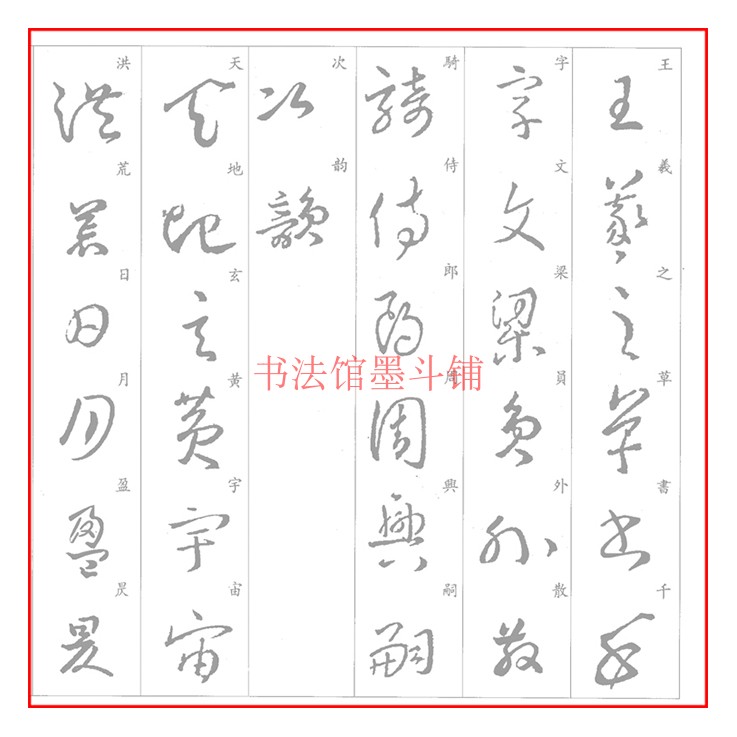 王羲之草書千
字文梁員外散
騎侍郎周興嗣
次韵
天地玄黃宇宙
洪荒日月盈昃
书法馆墨斗铺